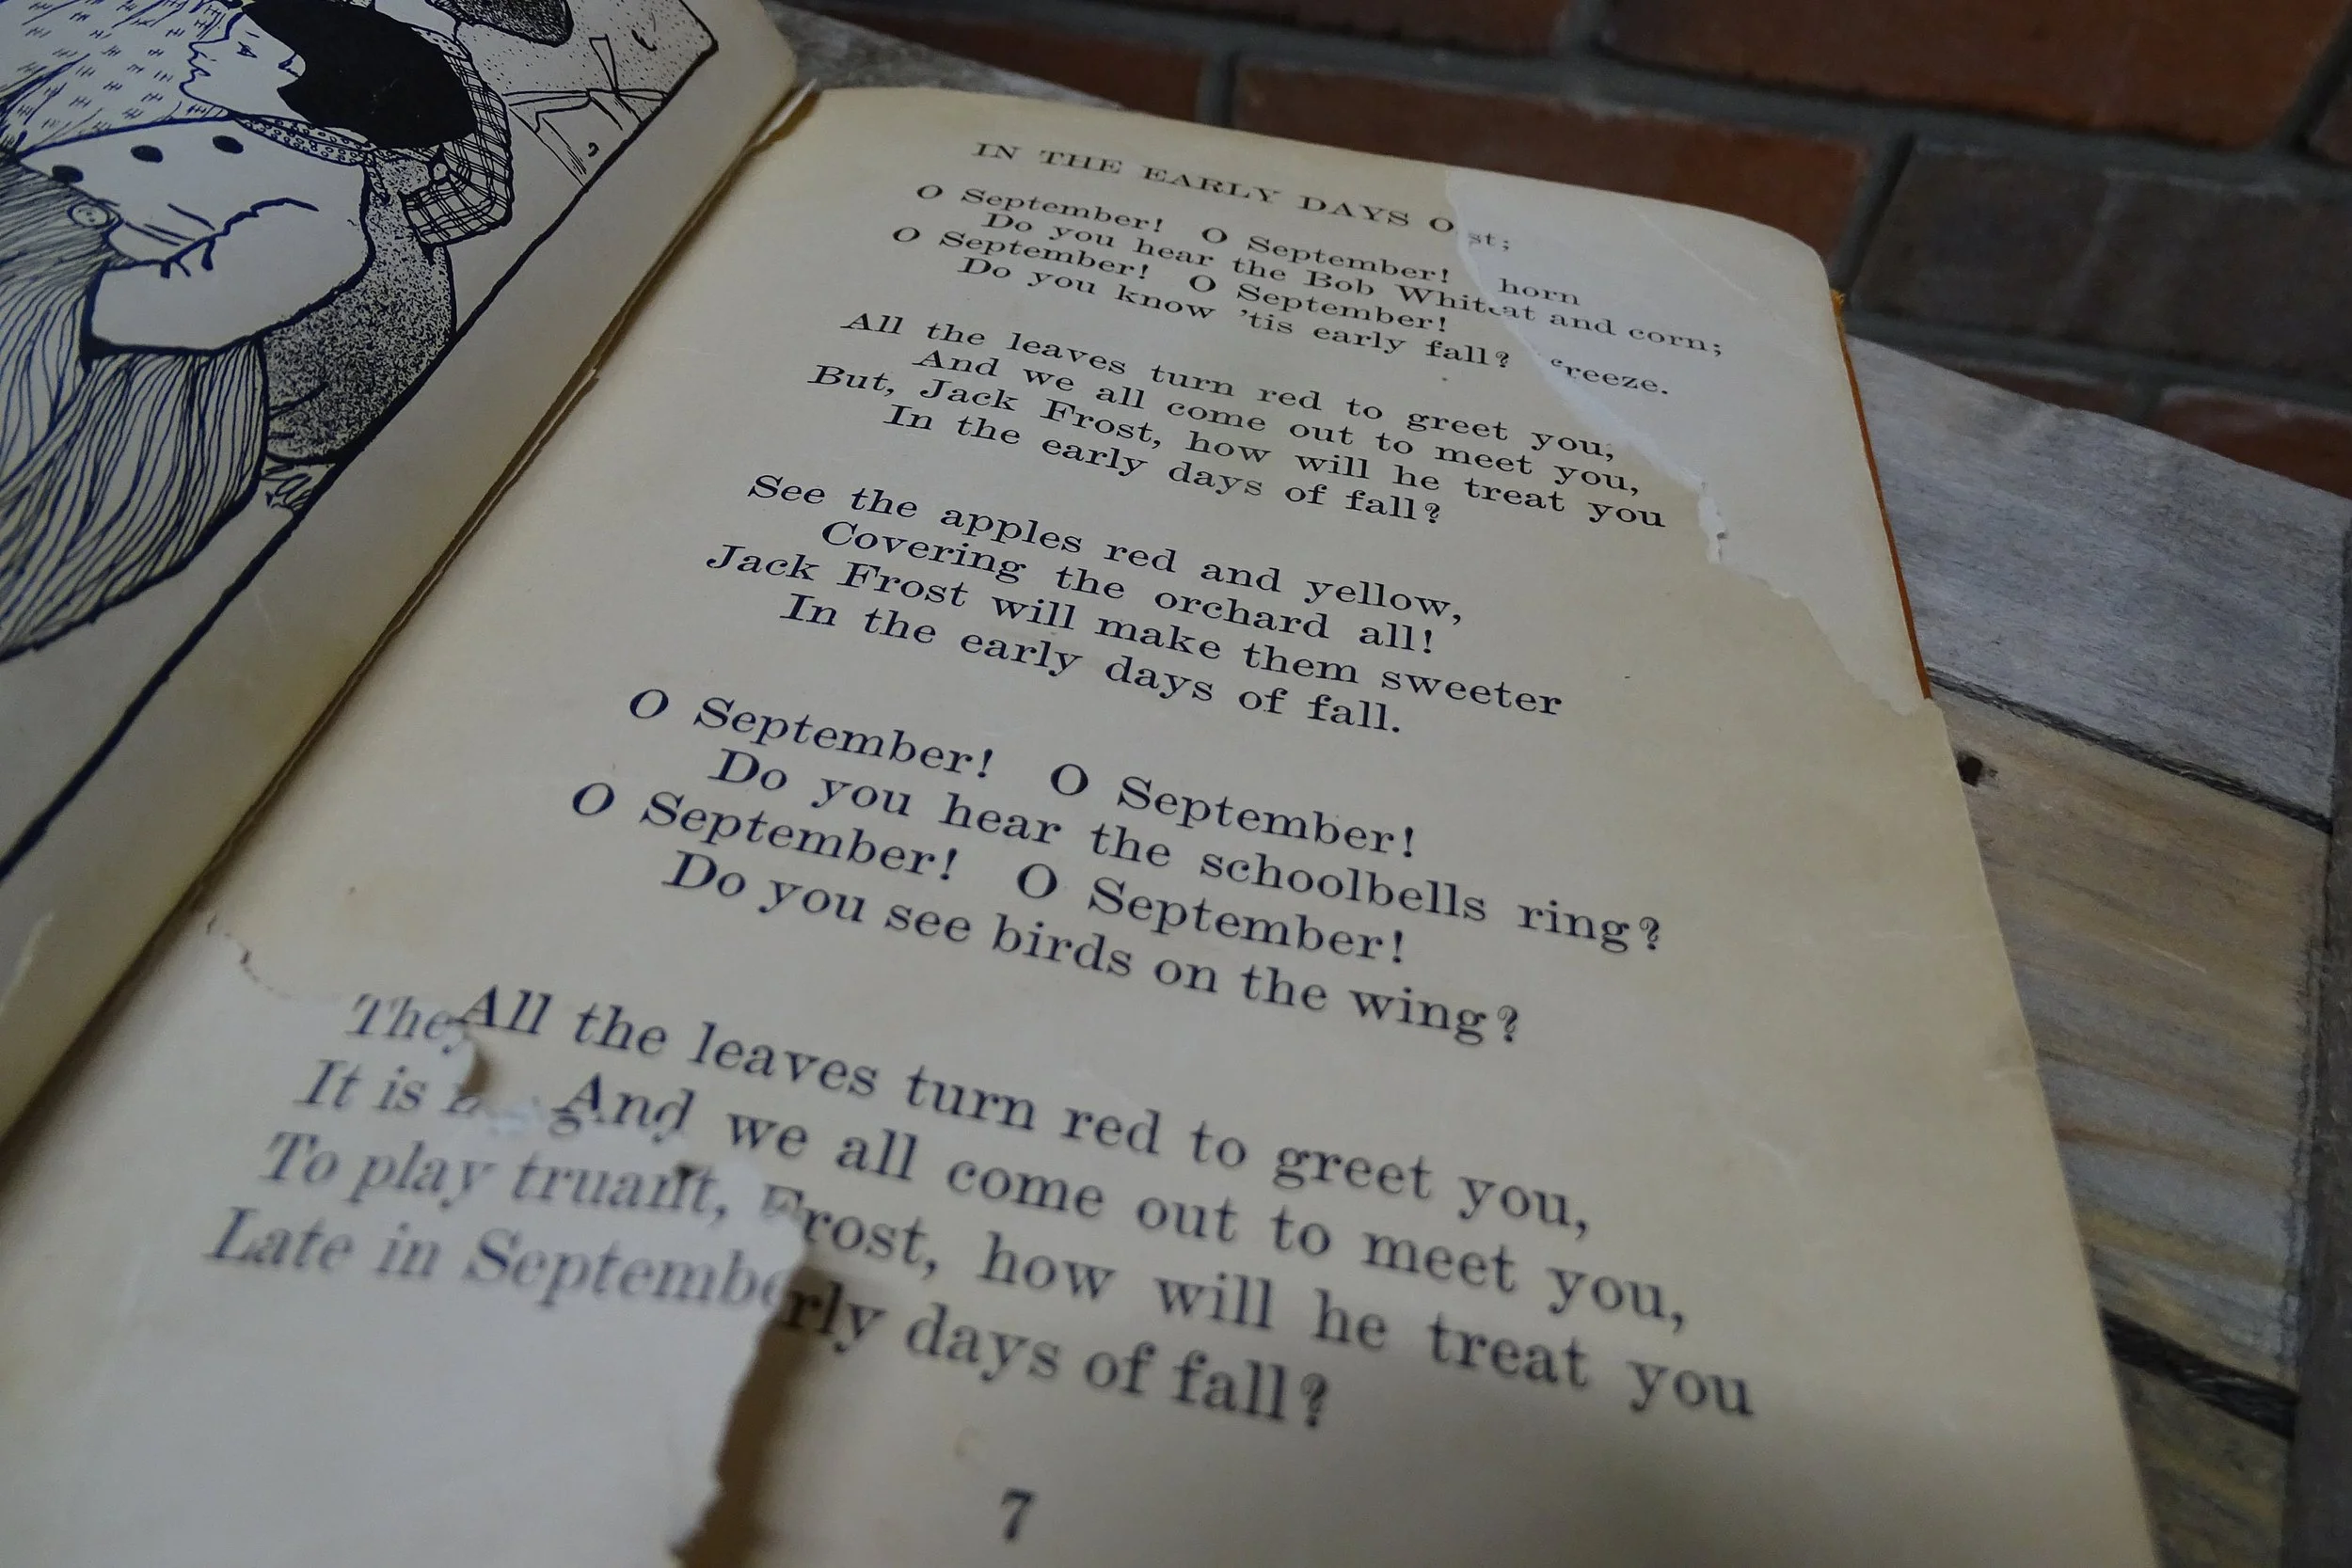 IN THE EARLY DAYS O
st;
O September! O September!
horn
Do you hear the Bob Whit
at and corn;
O September! O September!
Do you know 'tis early fall?
reeze.
All the leaves turn red to greet you,
And we all come out to meet you,
But, Jack Frost, how will he treat you
In the early days of fall?
See the apples red and yellow,
Covering the orchard all!
Jack Frost will make them sweeter
In the early days of fall.
O September! O September!
Do you hear the schoolbells ring?
O September! O September!
Do you see birds on the wing?
They
All the leaves turn red to greet you,
It is
And we all come out to meet you,
To play truant,
Frost, how will he treat you
Late in Septembe
rly days of fall?
7